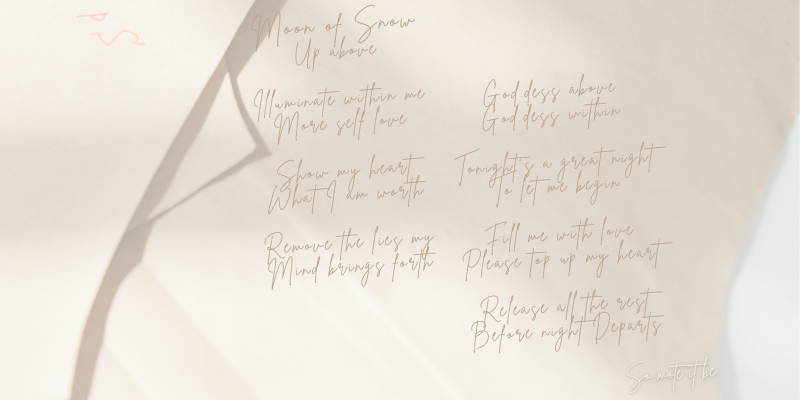 PS
Moon of Snow
Up above
Illuminate within me
More self love
Show my heart
What I am worth
Remove the lies my
Mind brings forth
Goddess above
Goddess within
Tonight's a great night
To let me begin
Fill me with love
Please top up my heart
Release all the rest
Before night Departs
So mote it be